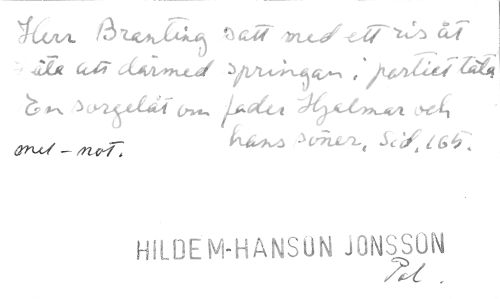 Herr Branting satt med ett ris åt
åta att därmed springan i partiet täta
En sorgelåt om fader Hjalmar och
hans söner, Sid. 165.
mel-not.
HILDEM-HANSON JONSSON
Pol.